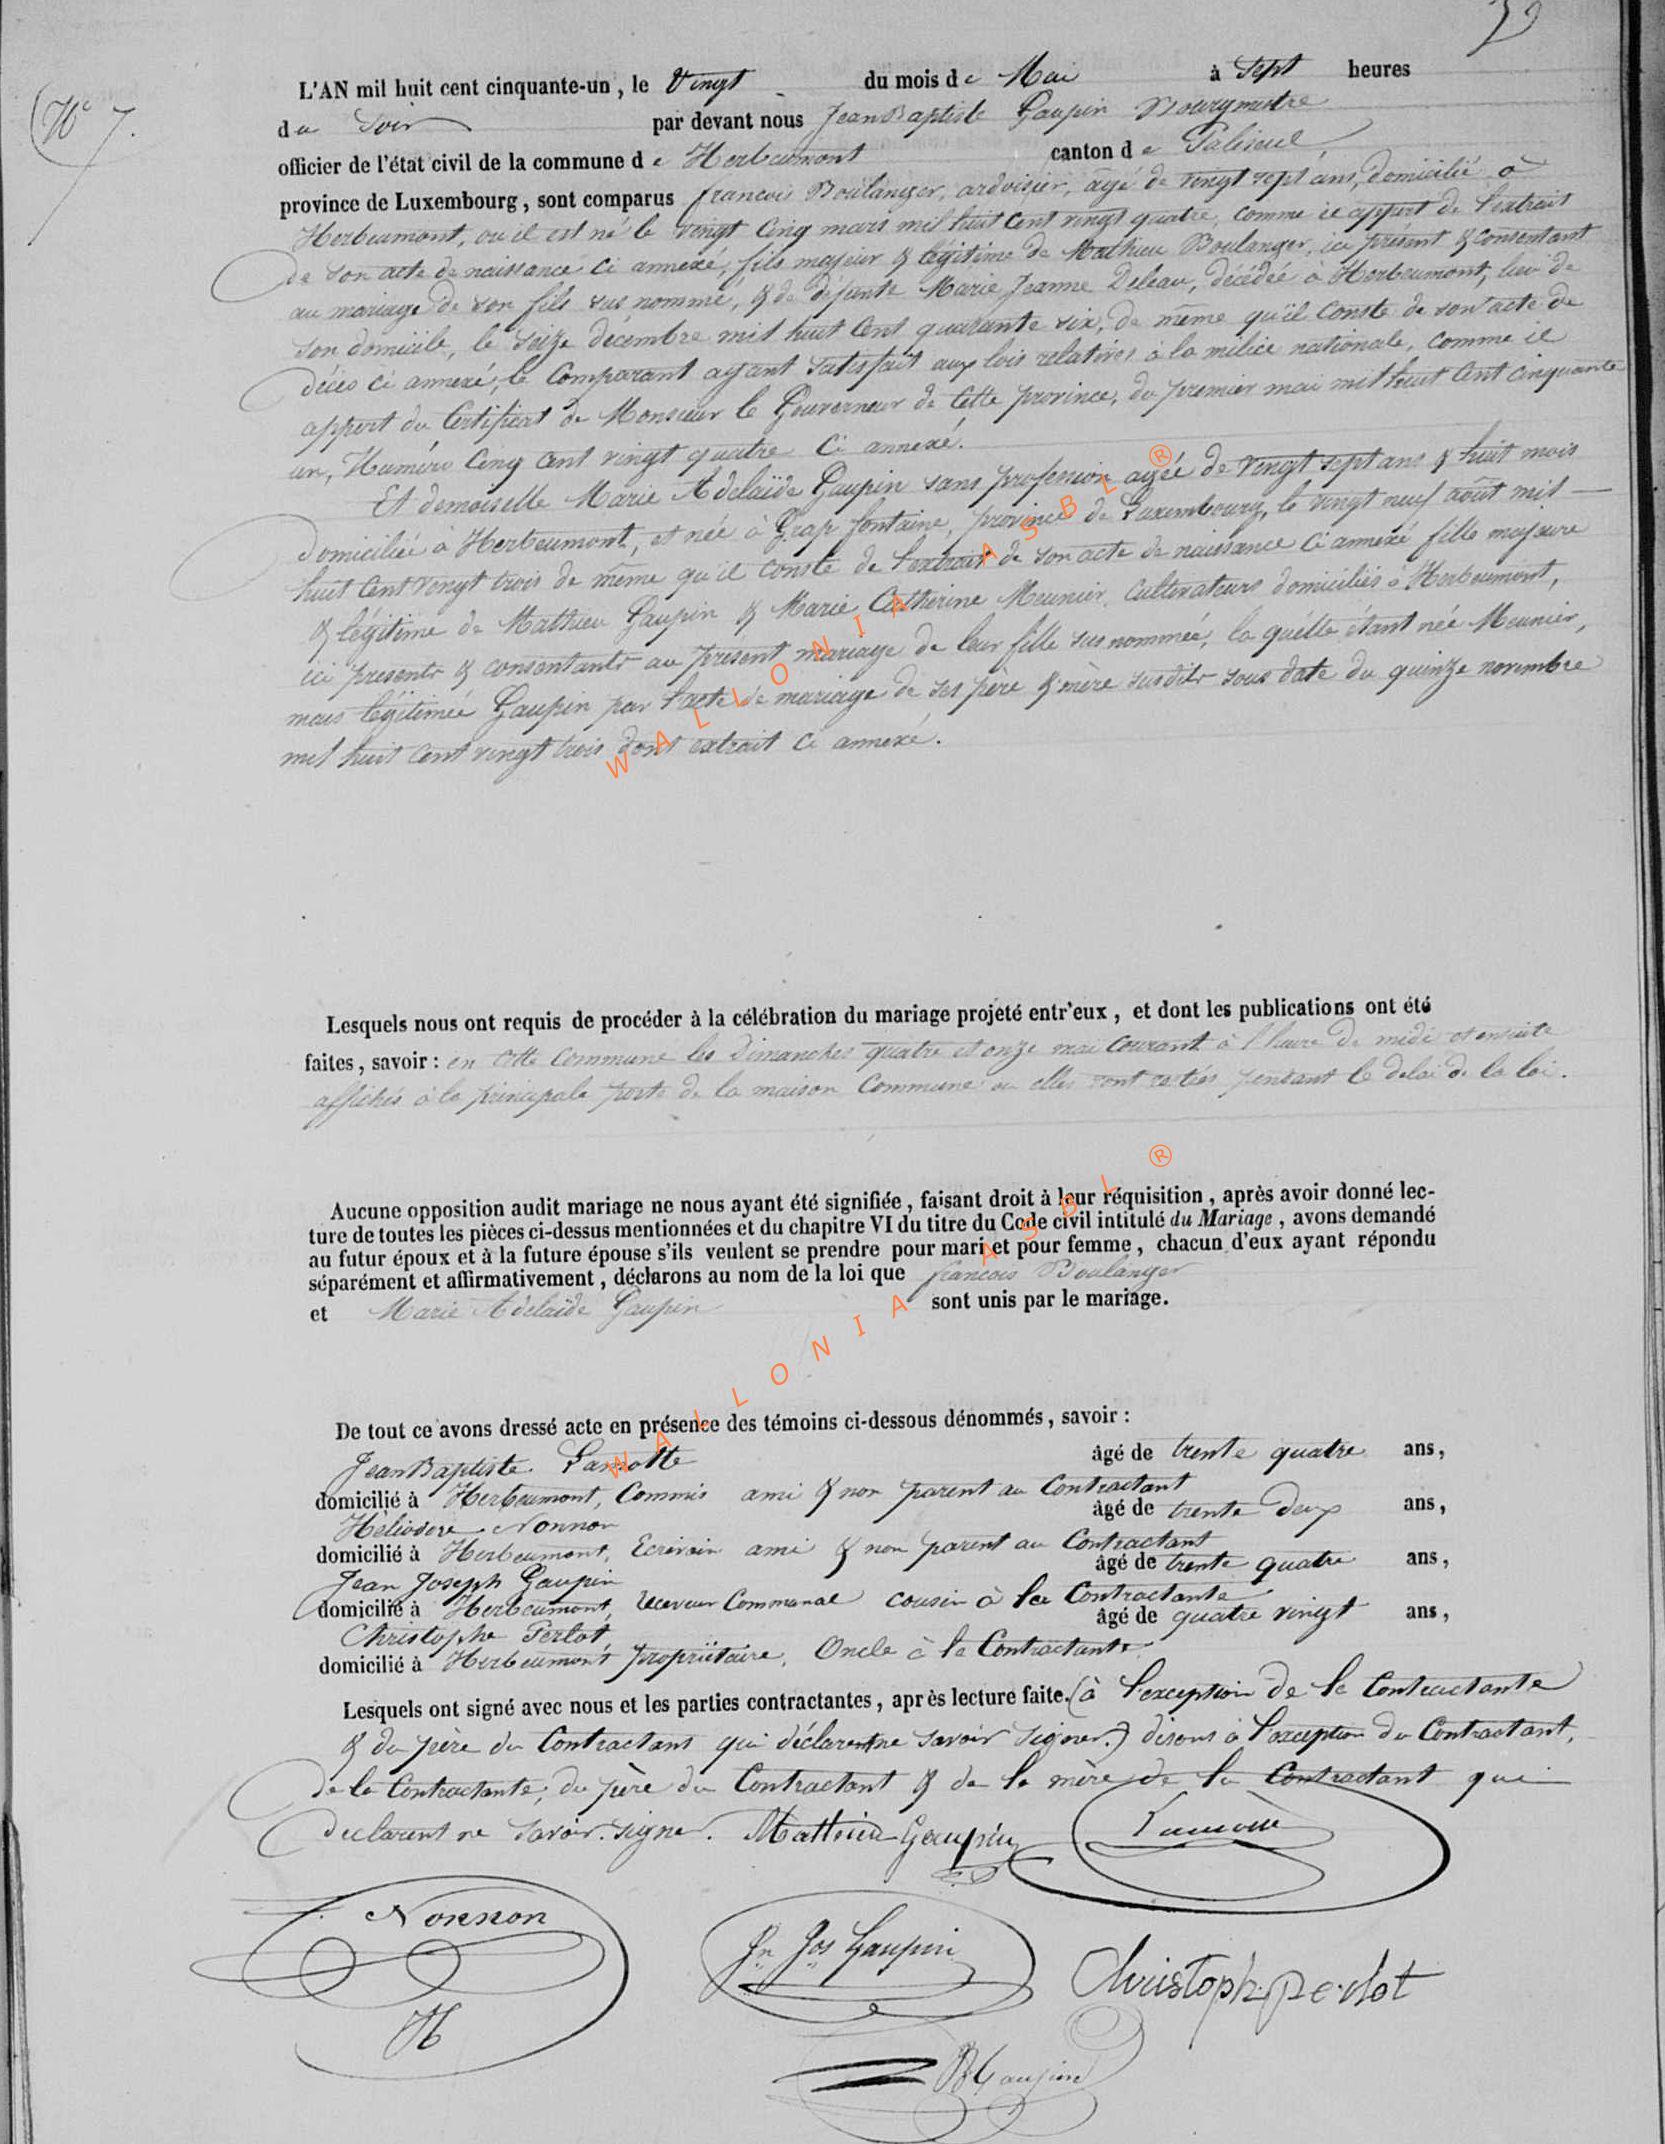 39
N° 7.
L'AN mil huit cent cinquante-un, le Vingt du mois de Mai à Sept heures
du Soir par devant nous Jean Baptiste Gaupin Bourgmestre
officier de l'état civil de la commune de Herbeumont canton de Paliseul
province de Luxembourg, sont comparus francois Boulanger, ardoisier, agé de vingt sept ans, domicilié à
Herbeumont, ou il est né le vingt Cinq mars mil huit Cent vingt quatre, comme il appert de l'extrait
de son acte de naissance ci annéxé, fils majeur & légitime de Mathieu Boulanger, ici présent & consentant
au mariage de son fils sus nommé, & de défunte Marie Jeanne Deleau, décédée à Herbeumont, lieu de
son domicile, le Seize décembre mil huit Cent quarante six, de même qu'il Conste de son acte de
décès ci annexé, le Comparant ayant Satisfait aux lois relatives à la milice nationale, comme il
appert du Certificat de Monsieur le Gouverneur de Cette province, du premier mai mil huit Cent cinquante
un, Numéro Cinq Cent vingt quatre Ci annexé.
Et demoiselle Marie Adelaïde Gaupin sans profession agée de vingt sept ans & huit mois
domiciliée à Herbeumont, et née à Grapfontaine, province de Luxembourg, le vingt neuf août mil
huit Cent vingt trois de même qu'il conste de l'extrait de son acte de naissance Ci annéxé fille majeure
& légitime de Mathieu Gaupin & Marie Catherine Meunier, Cultivateurs domiciliés à Herbeumont,
ici présents & consentants au présent mariage de leur fille sus nommée, la quélle étant née Meunier,
mais légitimée Gaupin par l'acte de mariage de ses père & mère susdits sous date du quinze novembre
mil huit Cent vingt trois dont extrait Ci annexé.
Lesquels nous ont requis de procéder à la célébration du mariage projeté entr'eux, et dont les publications ont été
faites, savoir : en Cette Commune les dimanches quatre et onze mai Courant à l'heure de midi et ensuite
affichés à la principale porte de la maison Commune ou elles sont restées pendant le délai de la loi.
Aucune opposition audit mariage ne nous ayant été signifiée, faisant droit à leur réquisition, après avoir donné lec-
ture de toutes les pièces ci-dessus mentionnées et du chapitre VI du titre du Code civil intitulé du Mariage, avons demandé
au futur époux et à la future épouse s'ils veulent se prendre pour mari et pour femme, chacun d'eux ayant répondu
séparément et affirmativement, déclarons au nom de la loi que francois Boulanger
et Marie Adelaïde Gaupin sont unis par le mariage.
De tout ce avons dressé acte en présence des témoins ci-dessous dénommés, savoir :
Jean Baptiste Lamotte âgé de trente quatre ans,
domicilié à Herbeumont, Commis ami & non parent au Contractant
Héliodore Nonnon âgé de trente deux ans,
domicilié à Herbeumont, Ecrivain ami & non parent au Contractant
Jean Joseph Gaupin âgé de trente quatre ans,
domicilié à Herbeumont, receveur Communal cousin à la Contractante
Christophe Perlot âgé de quatre vingt ans,
domicilié à Herbeumont propriétaire, Oncle à la Contractante
Lesquels ont signé avec nous et les parties contractantes, après lecture faite. (à l'exception de la Contractante
& du père du Contractant qui déclarent ne savoir signer.) disons à l'exception du Contractant,
de la Contractante, du père du Contractant & de la mère de la Contractant qui
declarent ne savoir signer. Mathieu Gaupin Lamotte
Nonnon
H
Jn Jos Gaupin
Christoph perlot
JB Gaupin
WALLONIA ASBL ®
WALLONIA ASBL ®